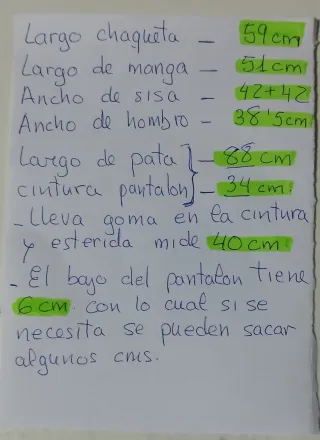 Largo chaqueta - 59 cm
Largo de manga - 51 cm
Ancho de sisa - 42+42
Ancho de hombro - 38'5cm
Largo de pata - 88 cm
cintura pantalon - 34 cm.
- Lleva goma en la cintura
y esterida mide 40 cm.
- El bajo del pantalon tiene
6 cm. con lo cual si se
necesita se pueden sacar
algunos cms.